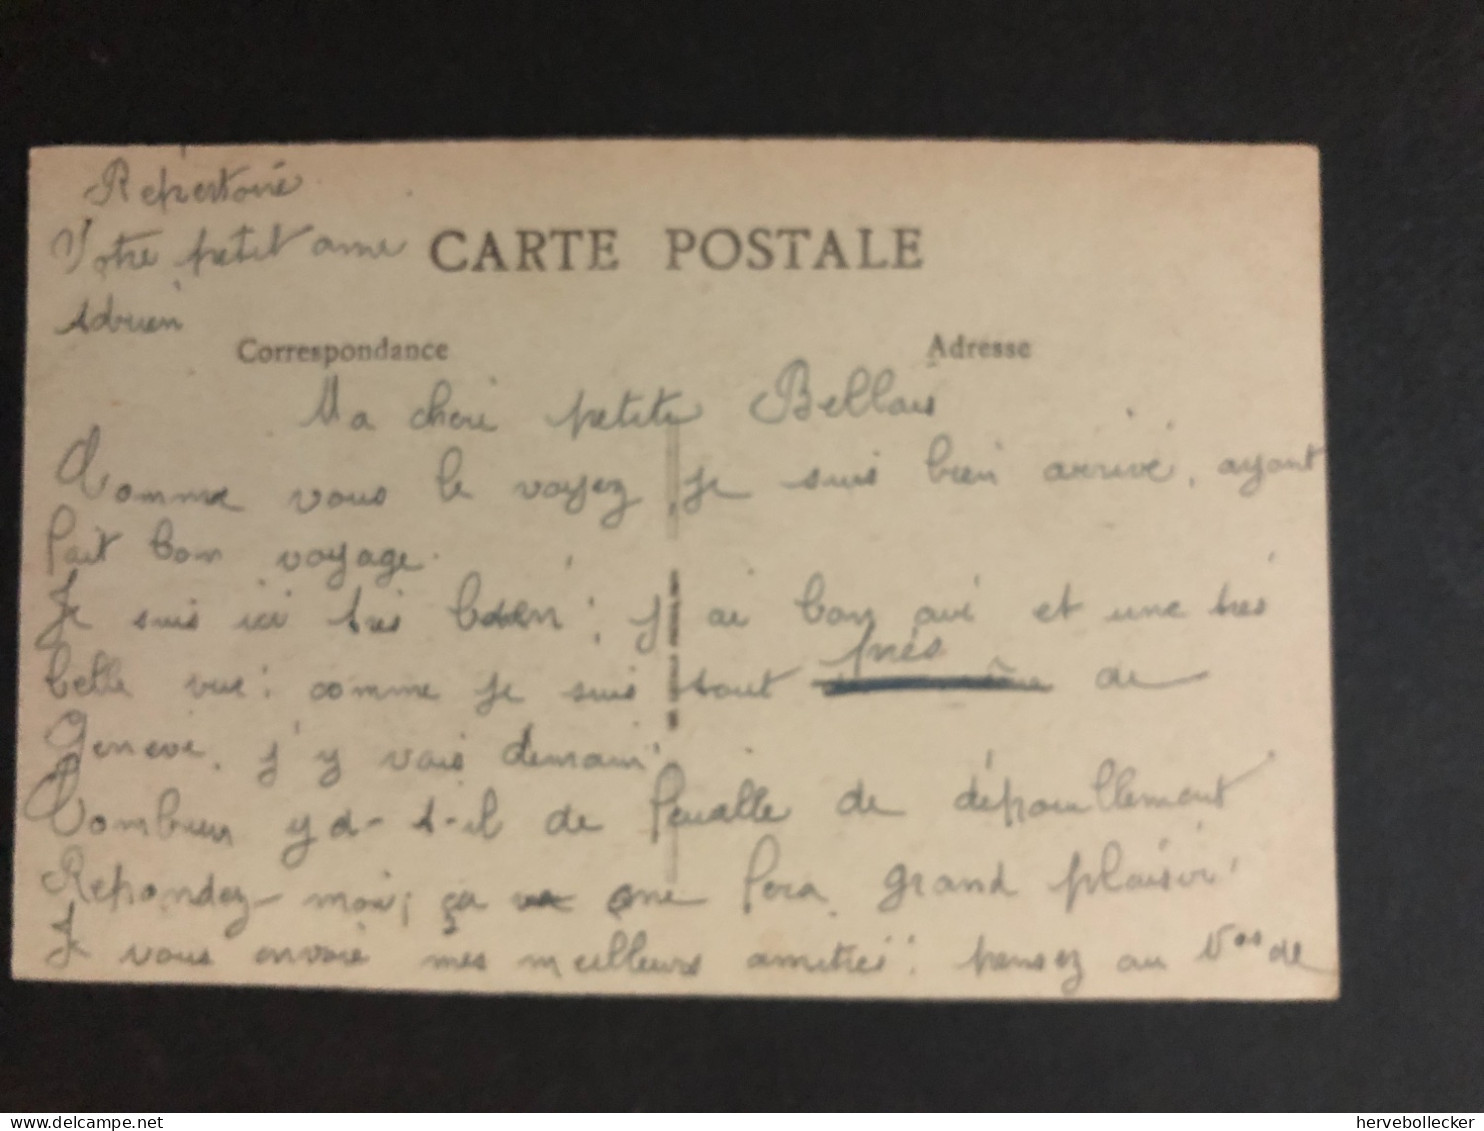 Repertoire
Votre petit ami
Adrien
CARTE POSTALE
Correspondance
Adresse
Ma cheri petite Bellais
Comme vous le voyez, je suis bien arrivé, ayant
fait bon voyage.
Je suis ici très bien; j'ai bon air et une très
belle vue; comme je suis tout près de
Genève, j'y vais demain.
Combien y a-t-il de feuille de dépouillement
Repondez-moi; ça me fera grand plaisir.
Je vous envoie mes meilleurs amitiés; pensez au Vos de
hervebollecker